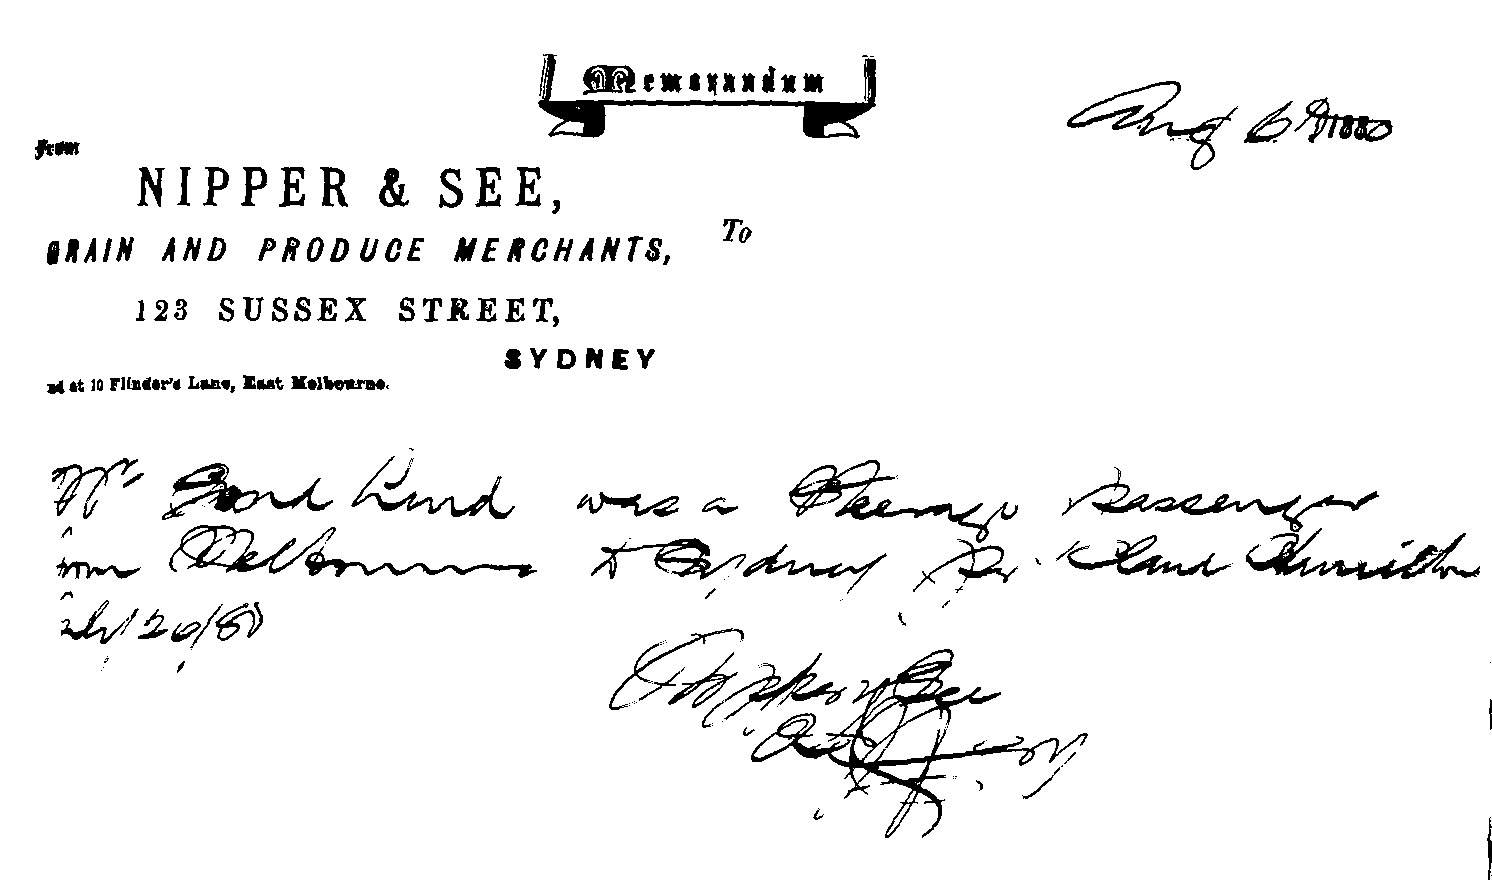 Memorandum
Aug 6th 1880
From
NIPPER & SEE,
GRAIN AND PRODUCE MERCHANTS,
To
123 SUSSEX STREET,
SYDNEY
nd at 10 Flinder's Lane, East Melbourne.
Mr Lund was a Steerage passenger
from Melbourne to Sydney per
July 20/80
Nipper & See